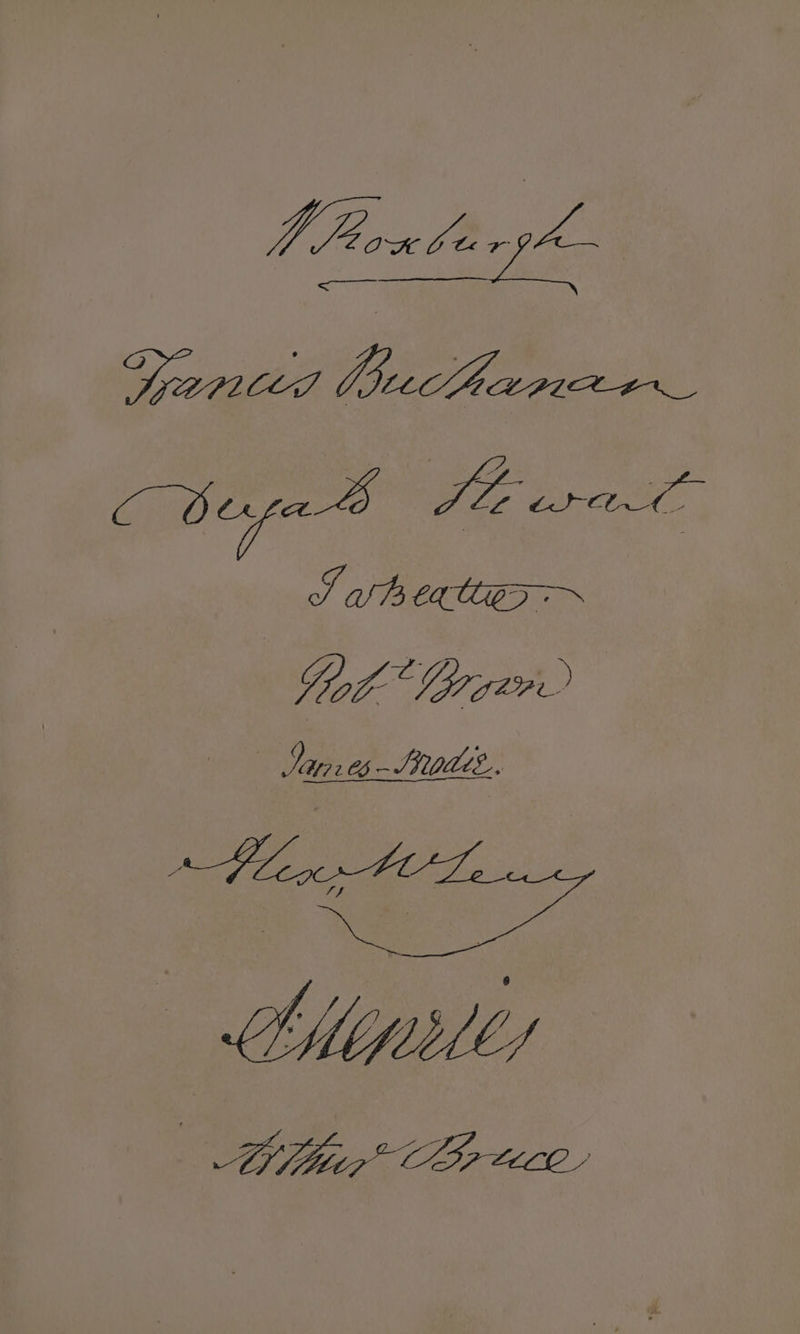 W Roxburgh
Francis Buchanan
Dugald Stewart
J a/s Beattie
Robt Brown
James Brodie.
A Menzies
Arthur Bruce